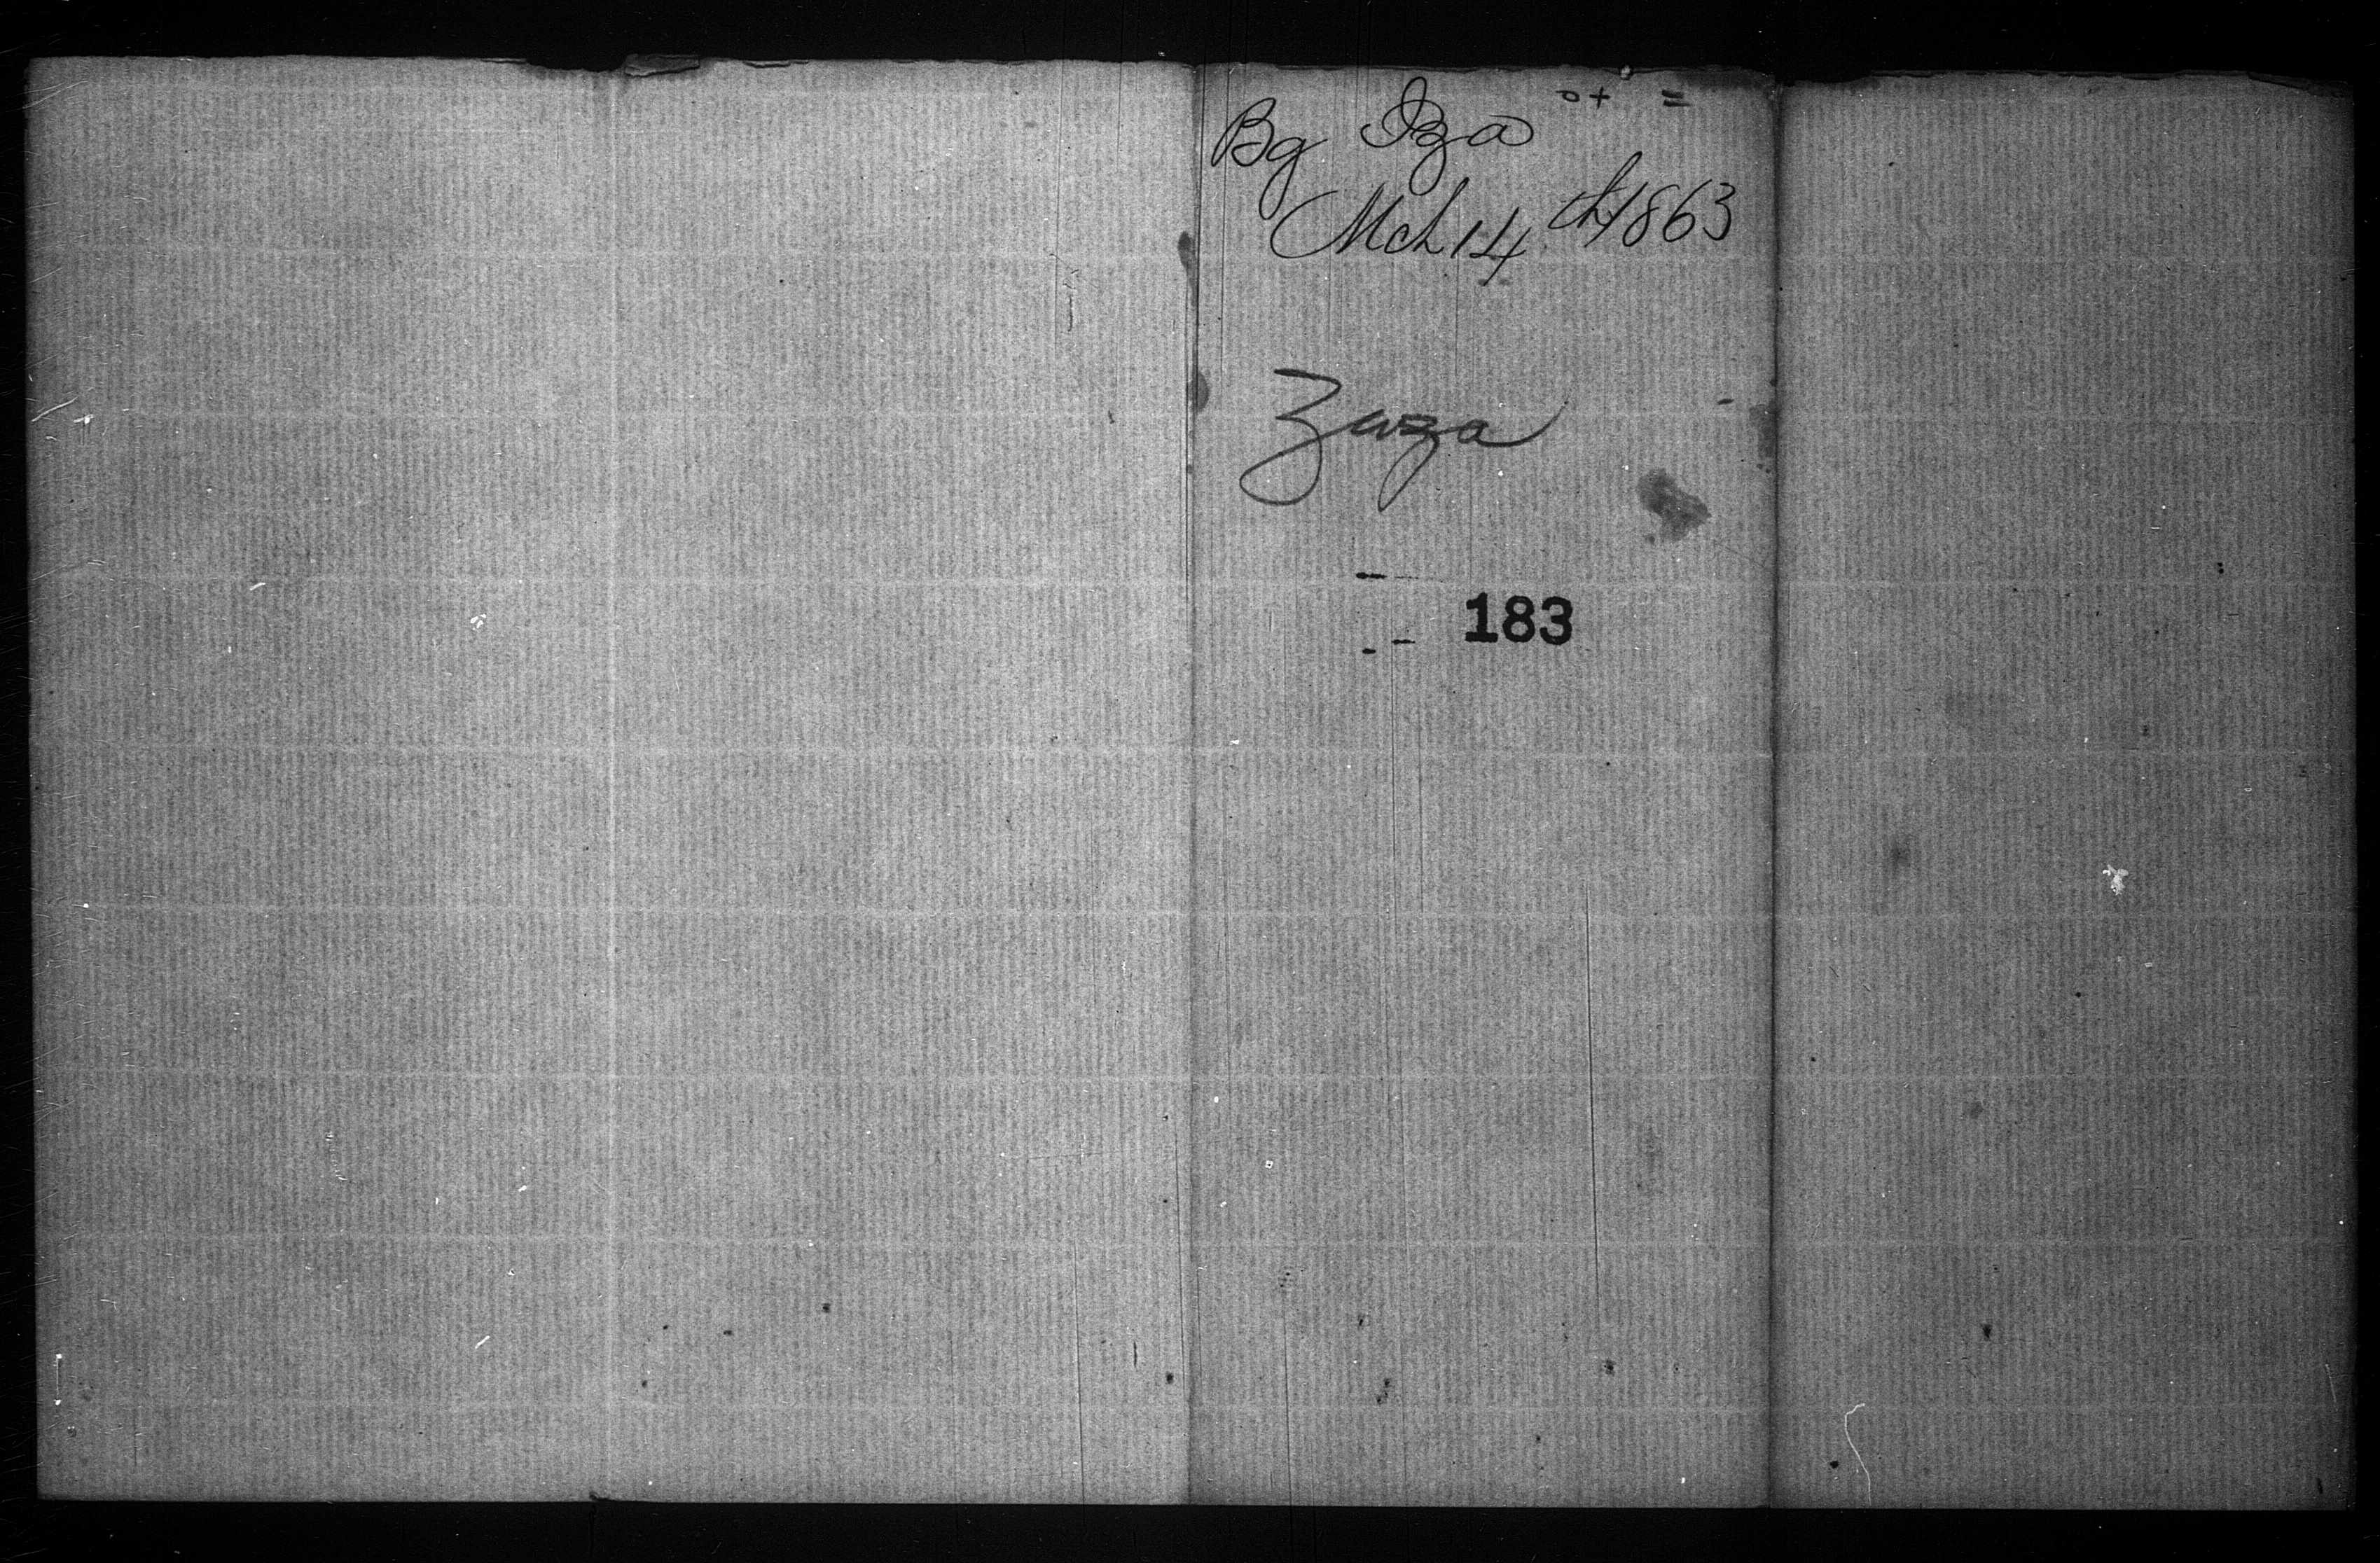 Bg Iza
Mch 14th 1863
Zaza
183